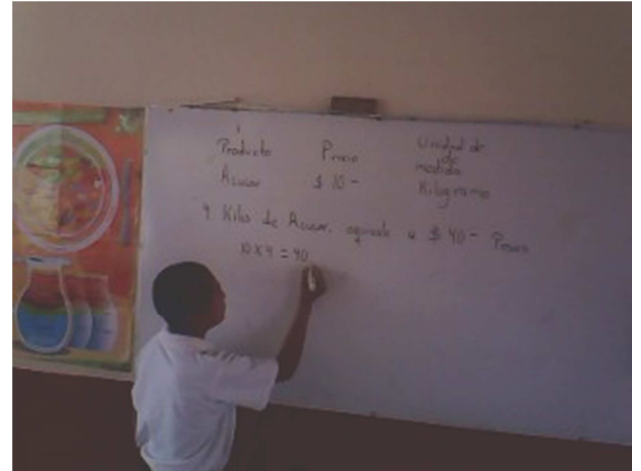 Producto Precio Unidad de
de
medida
Azucar $ 10- Kilogramo
4 Kilos de Azucar, equivale a $ 40- Pesos
10 x 4 = 40